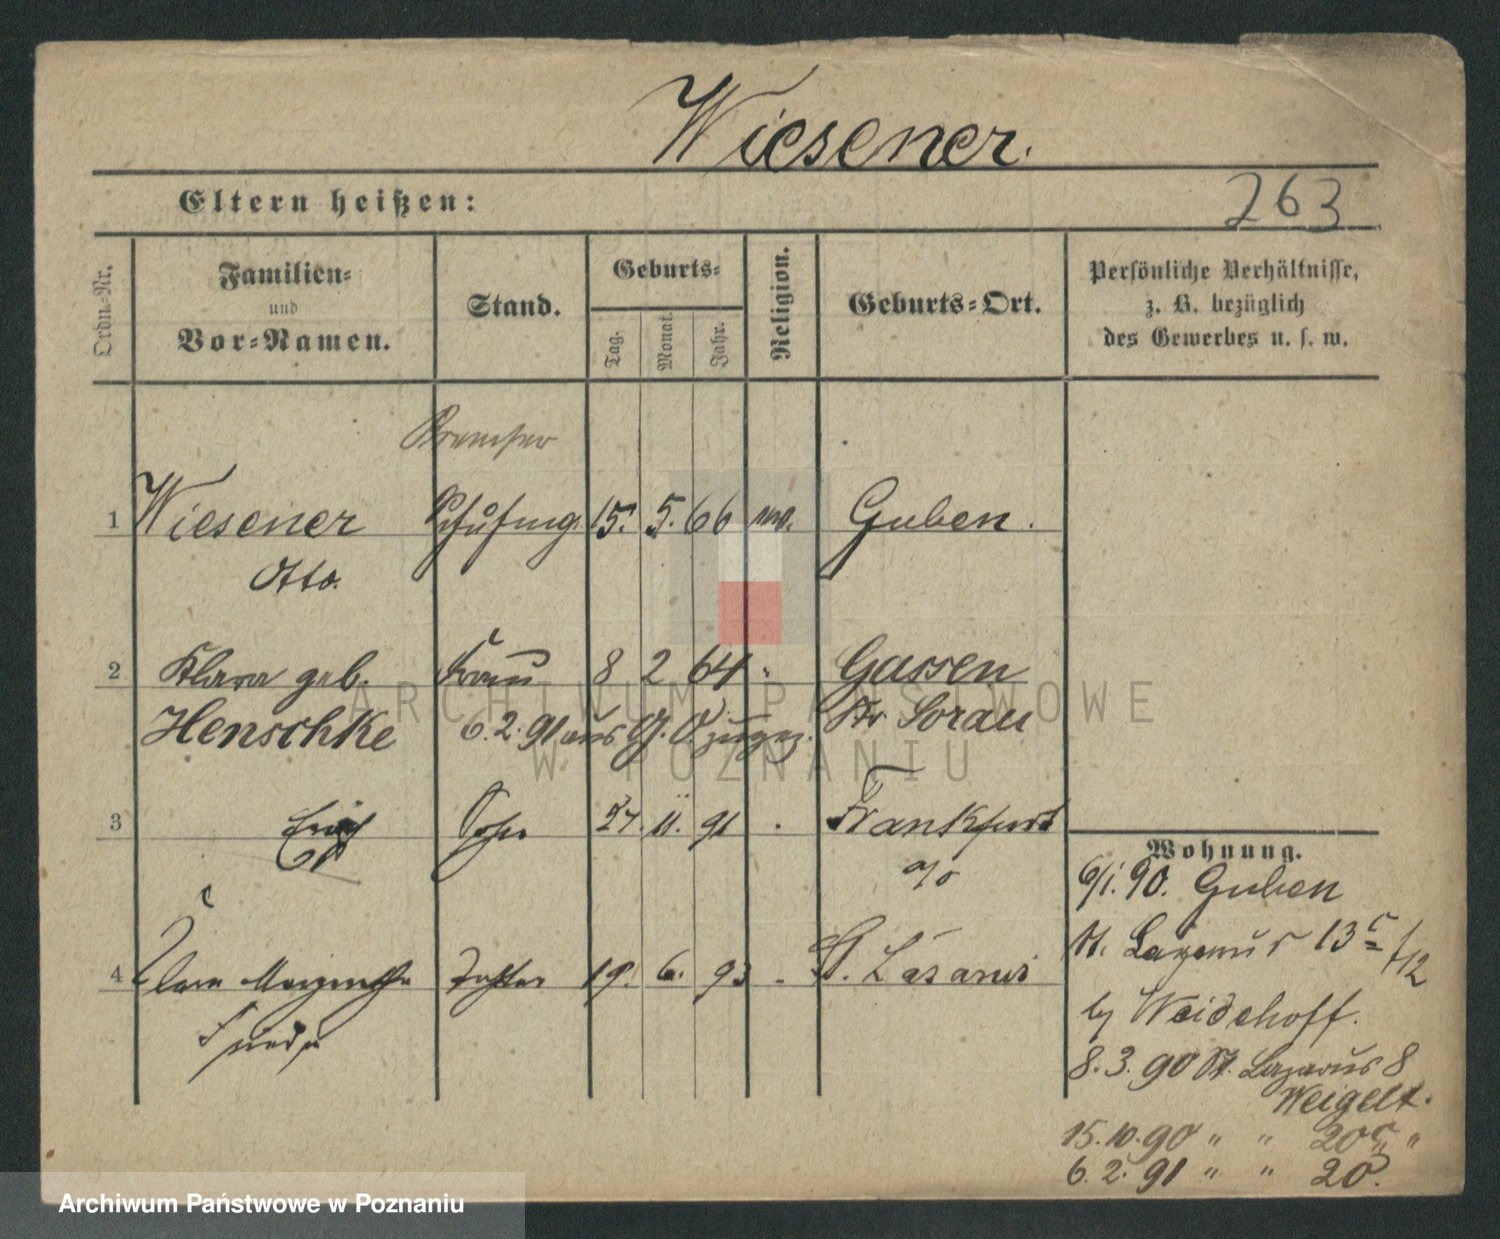 Wiesener.
Eltern heißen:
263
Ordn.-Nr.
Familien-
und
Vor-Namen.
Stand.
Geburts-
Tag.
Monat.
Jahr.
Religion.
Geburts-Ort.
Persönliche Verhältnisse,
z. B. bezüglich
des Gewerbes u. s. w.
Bremser
1 Wiesener 15. 5. 66 Guben.
Otto.
2 Klara geb. Frau 8 2 64 " Gassen
Henschke 6.2.91 aus zugez. Kr Sorau
3 Erich Sohn 27. 11. 91 Frankfurt
a/O
4 Clara Margarethe Tochter 19. 6. 93 St. Lazarus
Frieda
Wohnung.
6/1. 90. Guben
St. Lazarus 13c
by Weidehoff.
8. 3. 90 St. Lazarus 8
Weigelt.
15. 10. 90 " " 20c "
6. 2. 91 " " 20.
ARCHIWUM PAŃSTWOWE
W POZNANIU
Archiwum Państwowe w Poznaniu